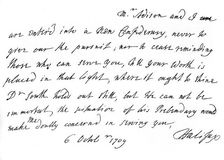 Mr Addison and I
are entred into a New Confederacy, never to
give over the pursuit, nor to cease reminding
those who can serve you, till your worth is
placed in that light, where it ought to shine
Dr South holds out still, but He can not be
immortal, the situation of his Prebendary woud
make me doubly concernd in serving you,
6 Octobr 1709
Halifax